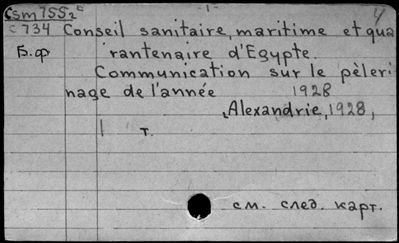 Csm755₂c -1- 4
C734 Conseil sanitaire, maritime et qua
Б.ф rantenaire d'Egypte.
Communication sur le pèleri
nage de l'année 1928
Alexandrie, 1928,
| т.
см. след. карт.